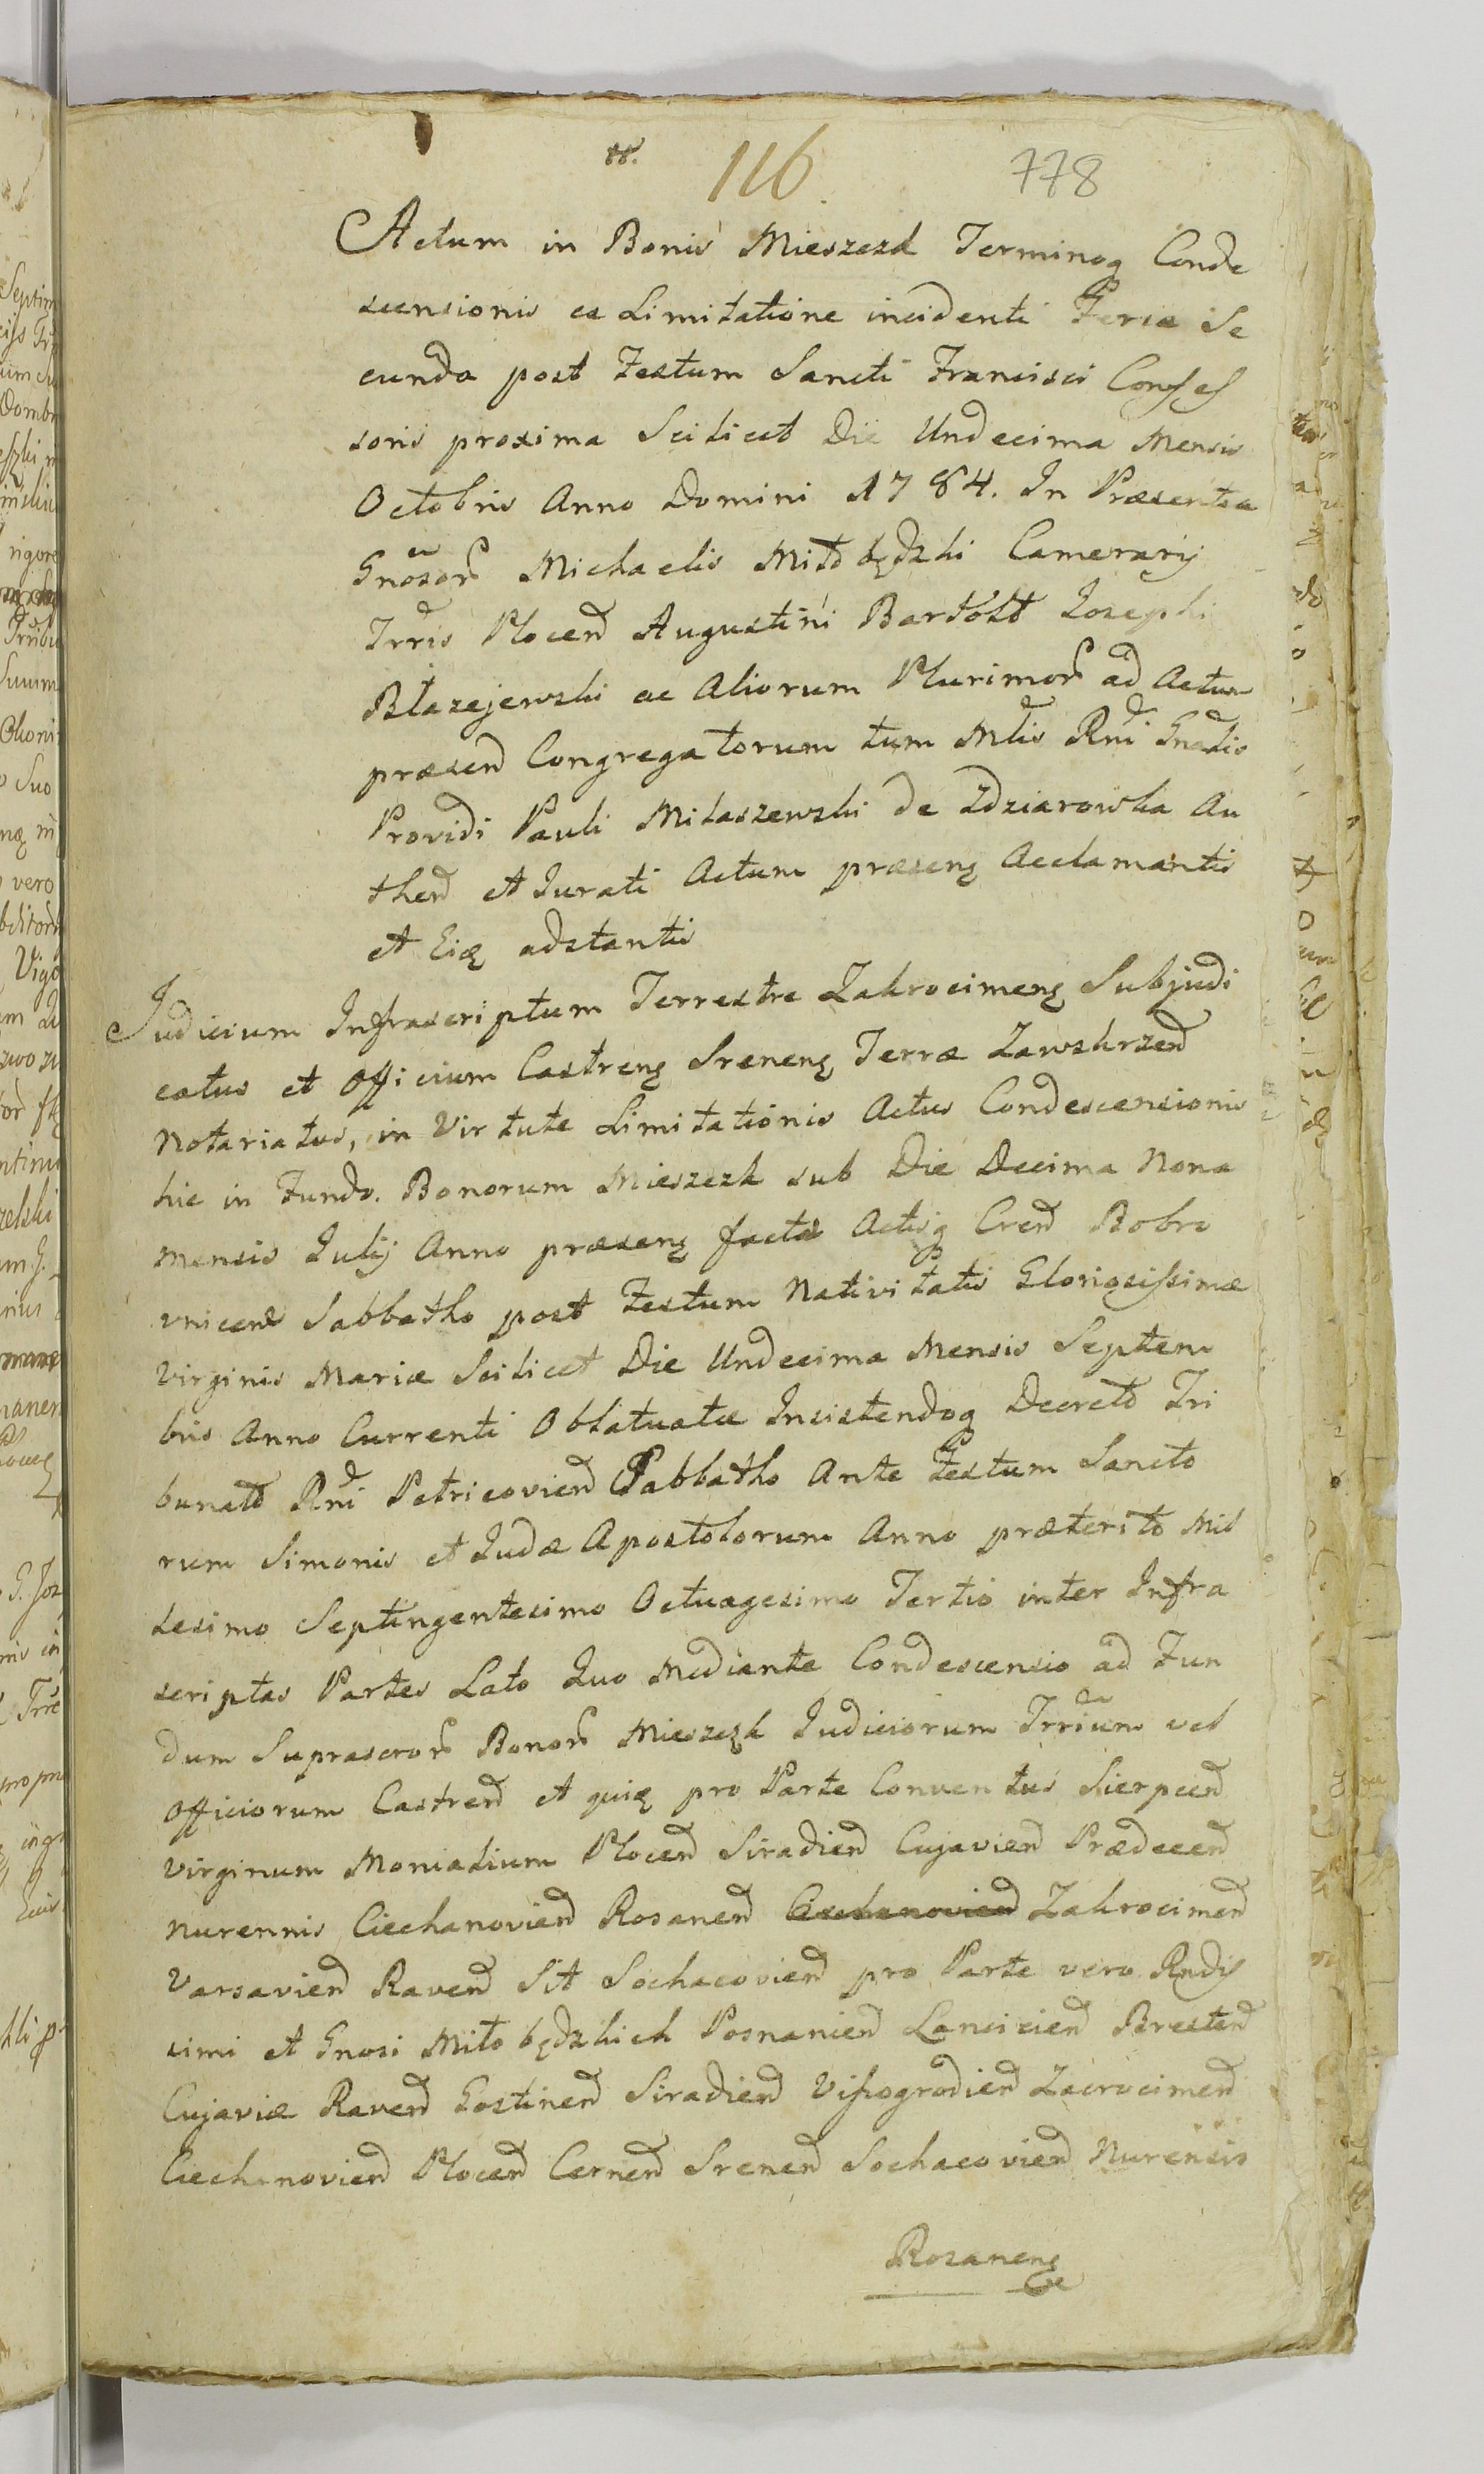 116
778
Actum in Bonis Mieszczk Terminoq Conde
scensionis ex Limitatione incidenti Feria Se
cunda post Festum Sancti Francisci Confes
soris proxima Scilicet Die Undecima Mensis
Octobris Anno Domini 1784. In Præsentia
Gnosor Michaelis Miłobędzki Camerarij
Trris Plocen Augustini Bartołt Josephi
Błazejewski ac Aliorum Plurimor ad Actum
præsen Congregatorum tum Mtis Rni Gnalis
Providi Pauli Miłaszewski de Zdziarowka Au
then et Jurati Actum præsens Acclamantis
et Eiq adstantis
Judicium Infrascriptum Terrestre Zakrocimens Subjudi
catus et Officium Castrens Srenens Terræ Zawskrzen
Notariatus, in Virtute Limitationis Actus Condescensionis
hic in Fundo. Bonorum Mieszczk sub Die Decima Nona
Mensis Julij Anno præsens factæ Actisq Cren Bobro
vnicen Sabbatho post Festum Nativitatis Gloriosissimæ
Virginis Mariæ Scilicet Die Undecima Mensis Septem
bris Anno Currenti Oblatuatæ Insistendoq Decreto Tri
bunalt Rni Petricovien Sabbatho Ante Festum Sancto
rum Simonis et Judæ Apostolorum Anno præterito Mil
lesimo Septingentesimo Octuagesimo Tertio inter Infra
scriptas Partes Lato Quo Mediante Condescensio ad Fun
dum Suprascror Bonor Mieszczk Judiciorum Trrium vel
Officiorum Castren et quiq pro Parte Conventus Sierpcen
Virginum Monialium Plocen Siradien Cujavien Prædecen
Nurennis Ciechanovien Rosanen Ciechanovien Zakrocimen
Varsavien Raven Sit Sochacovien pro Parte vero Rndis
simi et Gnosi Miłobędzkich Posnanien Lancicien Bresten
Cujaviæ Raven Gostinen Siradien Vissogrodien Zacrocimen
Ciechanovien Plocen Cernen Srenen Sochacovien Nurensis
Rosanens